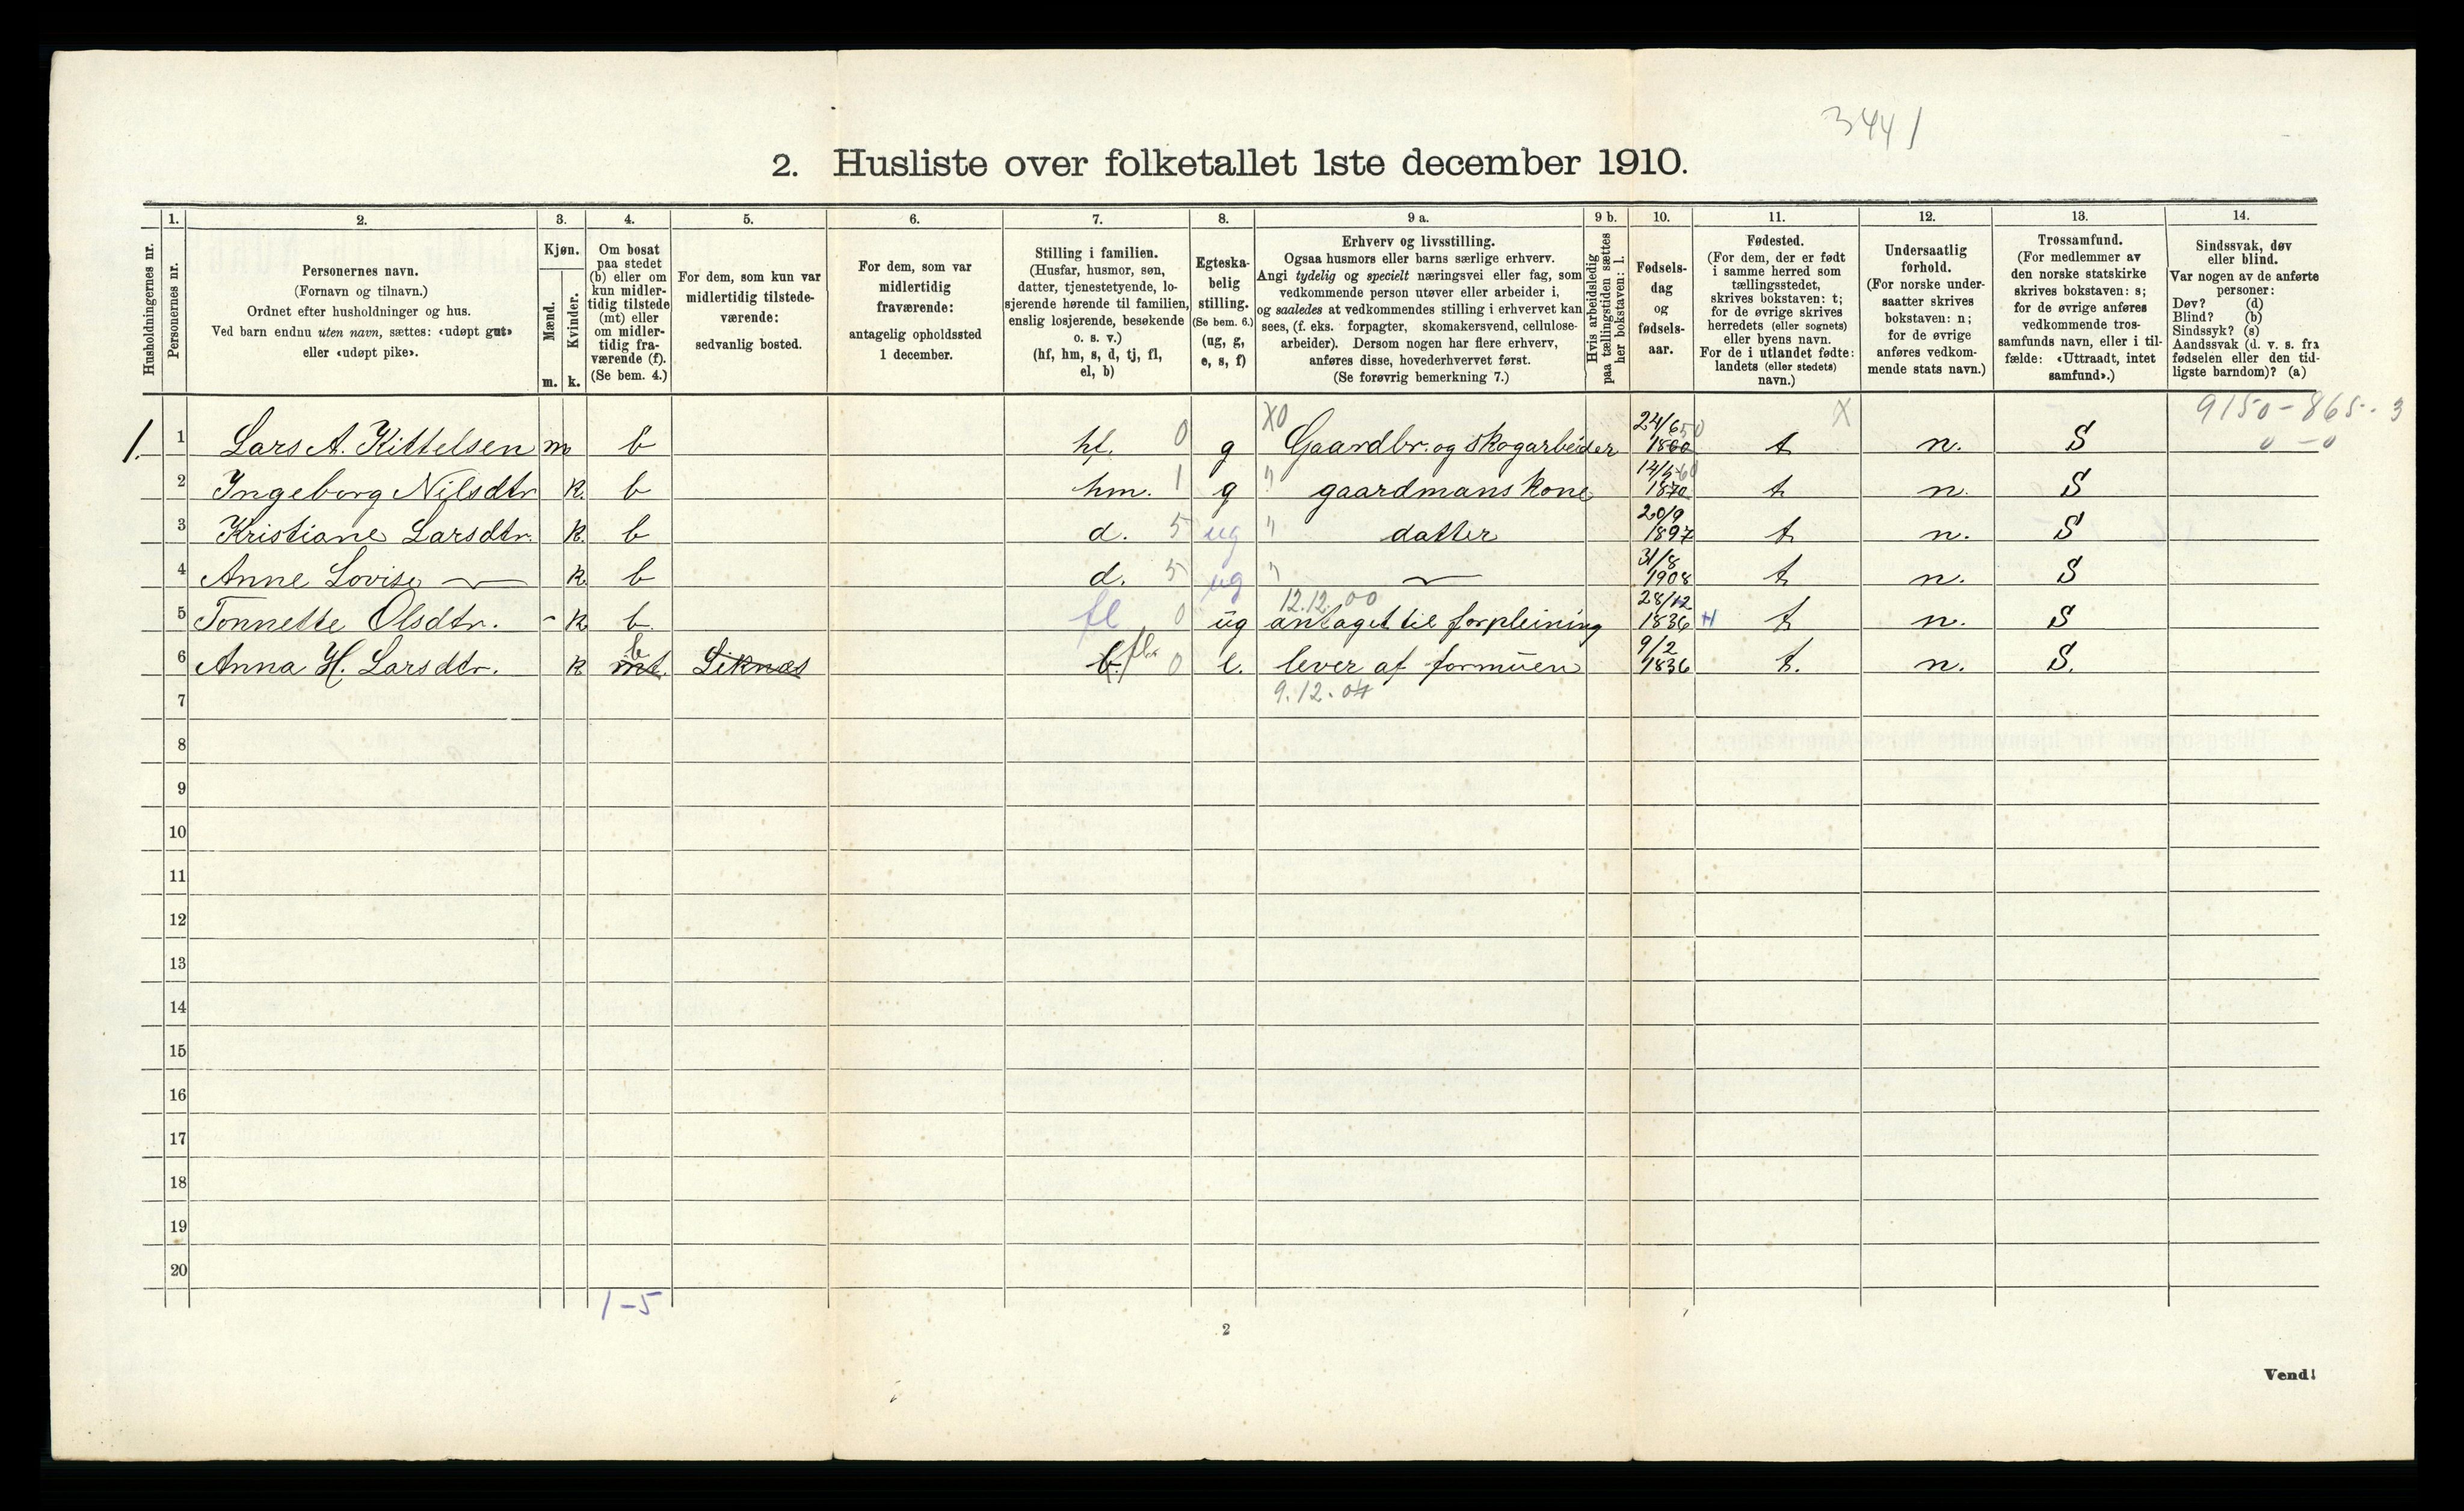 3441
2. Husliste over folketallet 1ste december 1910.
Husholdningernes nr.
1. Personernes nr.
2. Personernes navn.
(Fornavn og tilnavn.)
Ordnet efter husholdninger og hus.
Ved barn endnu uten navn, sættes: «udøpt gut»
eller «udøpt pike».
3. Kjøn.
Mænd. m.
Kvinder. k.
4. Om bosat
paa stedet
(b) eller om
kun midler-
tidig tilstede
(mt) eller
om midler-
tidig fra-
værende (f).
(Se bem. 4.)
5. For dem, som kun var
midlertidig tilstede-
værende:
sedvanlig bosted.
6. For dem, som var
midlertidig
fraværende:
antagelig opholdssted
1 december.
7. Stilling i familien.
(Husfar, husmor, søn,
datter, tjenestetyende, lo-
sjerende hørende til familien,
enslig losjerende, besøkende
o. s. v.)
(hf, hm, s, d, tj, fl,
el, b)
8. Egteska-
belig
stilling.
(Se bem. 6.)
(ug, g,
e, s, f)
9 a. Erhverv og livsstilling.
Ogsaa husmors eller barns særlige erhverv.
Angi tydelig og specielt næringsvei eller fag, som
vedkommende person utøver eller arbeider i,
og saaledes at vedkommendes stilling i erhvervet kan
sees, (f. eks. forpagter, skomakersvend, cellulose-
arbeider). Dersom nogen har flere erhverv,
anføres disse, hovederhvervet først.
(Se forøvrig bemerkning 7.)
9 b. Hvis arbeidsledig
paa tællingstiden sættes
her bokstaven: l.
10. Fødsels-
dag
og
fødsels-
aar.
11. Fødested.
(For dem, der er født
i samme herred som
tællingsstedet,
skrives bokstaven: t;
for de øvrige skrives
herredets (eller sognets)
eller byens navn.
For de i utlandet fødte:
landets (eller stedets)
navn.)
12. Undersaatlig
forhold.
(For norske under-
saatter skrives
bokstaven: n;
for de øvrige
anføres vedkom-
mende stats navn.)
13. Trossamfund.
(For medlemmer av
den norske statskirke
skrives bokstaven: s;
for de øvrige anføres
vedkommende tros-
samfunds navn, eller i til-
fælde: «Uttraadt, intet
samfund».)
14. Sindssvak, døv
eller blind.
Var nogen av de anførte
personer:
Døv? (d)
Blind? (b)
Sindssyk? (s)
Aandssvak (d. v. s. fra
fødselen eller den tid-
ligste barndom)? (a)
X0 X 9150-865-3
1. 1 Lars A. Kittelsen m b hf. 0 g Gaardbr. og skogarbeider 24/6 1860 50 t n. S 0-0
2 Ingeborg Nilsdtr k. b hm. 1 g " gaardmans kone 1870 60 t n. S
3 Kristiane Larsdtr. k. b d. 5 ug " datter 20/9 1897 t n. S
4 Anne Lovise — k. b d. 5 ug " — 31/8 1908 t n. S
12.12.00
5 Tonnette Olsdtr. - k b. fl 0 ug antaget til forpleining 28/12 1836 H t n. S
6 Anna H. Larsdtr. k mt. b Liknæs b. fl. 0 e. lever af formuen 9/2 1836 t. n. S.
7 9.12.04
8
9
10
11
12
13
14
15
16
17
18
19
20
1-5
2
Vend!